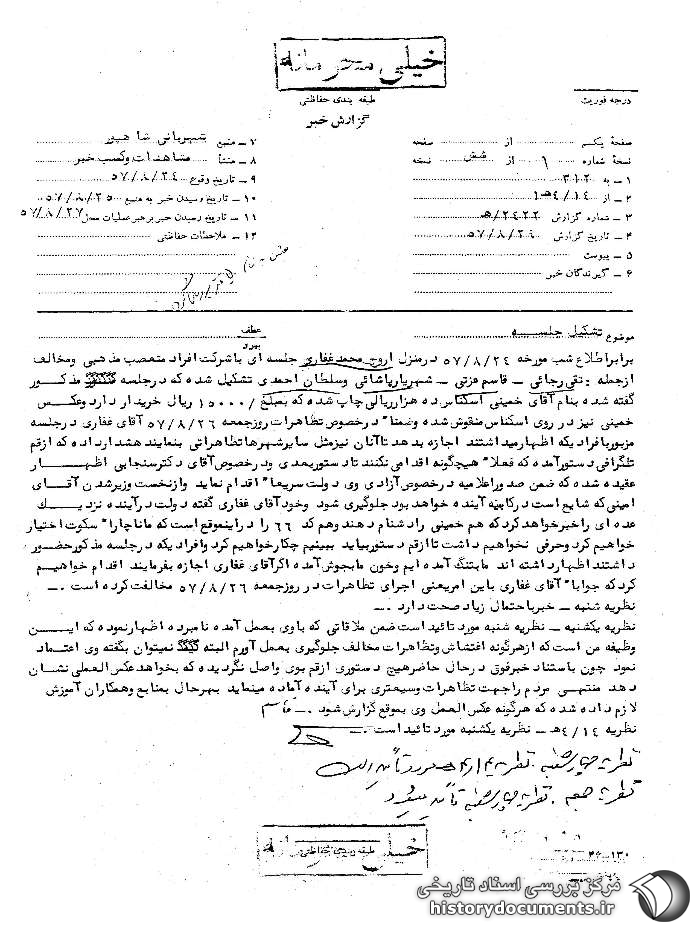 خیلی محرمانه
طبقه بندی حفاظتی
گزارش خبر
درجه فوریت
صفحهٔ یکم از صفحه
نسخهٔ شماره ۱ از شش نسخه
۱ – به ۳۱۲
۲ – از ۴/۱۴هـ۱
۳ – شماره گزارش ۲۴۲۲/هـ
۴ – تاریخ گزارش ۵۷/۸/۲۹
۵ – پیوست
۶ – گیرندگان خبر
۷ – منبع شهربانی شاهپور
۸ – منشأ مشاهدات وکسب خبر
۹ – تاریخ وقوع ۵۷/۸/۲۴
۱۰ – تاریخ رسیدن خبر به منبع ۵۷/۸/۲۵
۱۱ – تاریخ رسیدن خبر برهبر عملیات محل ۵۷/۸/۲۷
۱۲ – ملاحظات حفاظتی
موضوع تشکیل جلسه
عطف
پیرو
برابراطلاع شب مورخه ۵۷/۸/۲۴ درمنزل اروج محمدغفاری جلسه ای باشرکت افراد متعصب مذهبی ومخالف
ازجمله : تقی رجائی – قاسم عزتی – شهریارپاشائی وسلطان احمدی تشکیل شده که درجلسه مذکور
گفته شده بنام آقای خمینی اسکناس ده هزارریالی چاپ شده که بمبلغ /۱۵۰۰۰ ریال خریدار دارد وعکس
خمینی نیز در روی اسکناس منقوش شده وضمنا" درخصوص تظاهرات روزجمعه ۵۷/۸/۲۶ آقای غفاری درجلسه
مزبوربافرادیکه اظهارمیداشتند اجازه بدهد تاآنان نیزمثل سایرشهرها تظاهراتی بنمایند هشدارداده که ازقم
تلگرافی دستورآمده که فعلا" هیچگونه اقدامی نکنند تادستوربعدی ودرخصوص آقای دکترسنجابی اظهـــار
عقیده شده که ضمن صدوراعلامیه درخصوص آزادی وی دولت سریعا" اقدام نماید وازنخست وزیرشدن آقـای
امینی که شایع است درکابینه آینده خواهدبود جلوگیری شود وخودآقای غفاری گفته دولت درآینده نزدیـك
عده ای راخبرخواهدکرد که هم خمینی رادشنام دهند وهم کد ۶۶ را دراینموقع است که ماناچارا" سکوت اختیار
خواهیم کرد وحرفی نخواهیم داشت تاازقم دستوربیاید ببینیم چکارخواهیم کرد وافرادیکه درجلسه مذکورحضور
داشتند اظهارداشته اند مابتنگ آمده ایم وخون مابجوش آمده اگرآقای غفاری اجازه بفرمایند اقدام خواهیـم
کردکه جوابا" آقای غفاری باین امریعنی اجرای تظاهرات در روزجمعه ۵۷/۸/۲۶ مخالفت کرده است .ـ
نظریه شنبه – خبرباحتمال زیاد صحت دارد .ـ
نظریه یکشنبه – نظریه شنبه مورد تائیداست ضمن ملاقاتی که باوی بعمل آمده نامبرده اظهارنموده که ایــن
وظیفه من است که ازهرگونه اغتشاش وتظاهرات مخالف جلوگیری بعمل آورم البته نمیتوان بگفته وی اعتماد
نمود چون باستناد خبرفوق درحال حاضرهیچ دستوری ازقم بوی واصل نگردیده که بخواهدعکس العملی نشـان
دهد منتهی مردم راجهت تظاهرات وسیعتری برای آینده آماده مینماید بهرحال بمنابع وهمکاران آموزش
لازم داده شده که هرگونه عکس العمل وی بموقع گزارش شود .ـ قاسم
نظریه ۴/۱۴هـ – نظریه یکشنبه مورد تائید است .ـ
نظریه چهارشنبه . نظریه ۴/۱۴هـ مورد تأیید است
نظریه جمعه . نظریه چهارشنبه تأیید میشود
خیلی محرمانه
طبقه بندی حفاظتی
۱۳۰–۲۶
مرکز بررسی اسناد تاریخی
historydocuments.ir